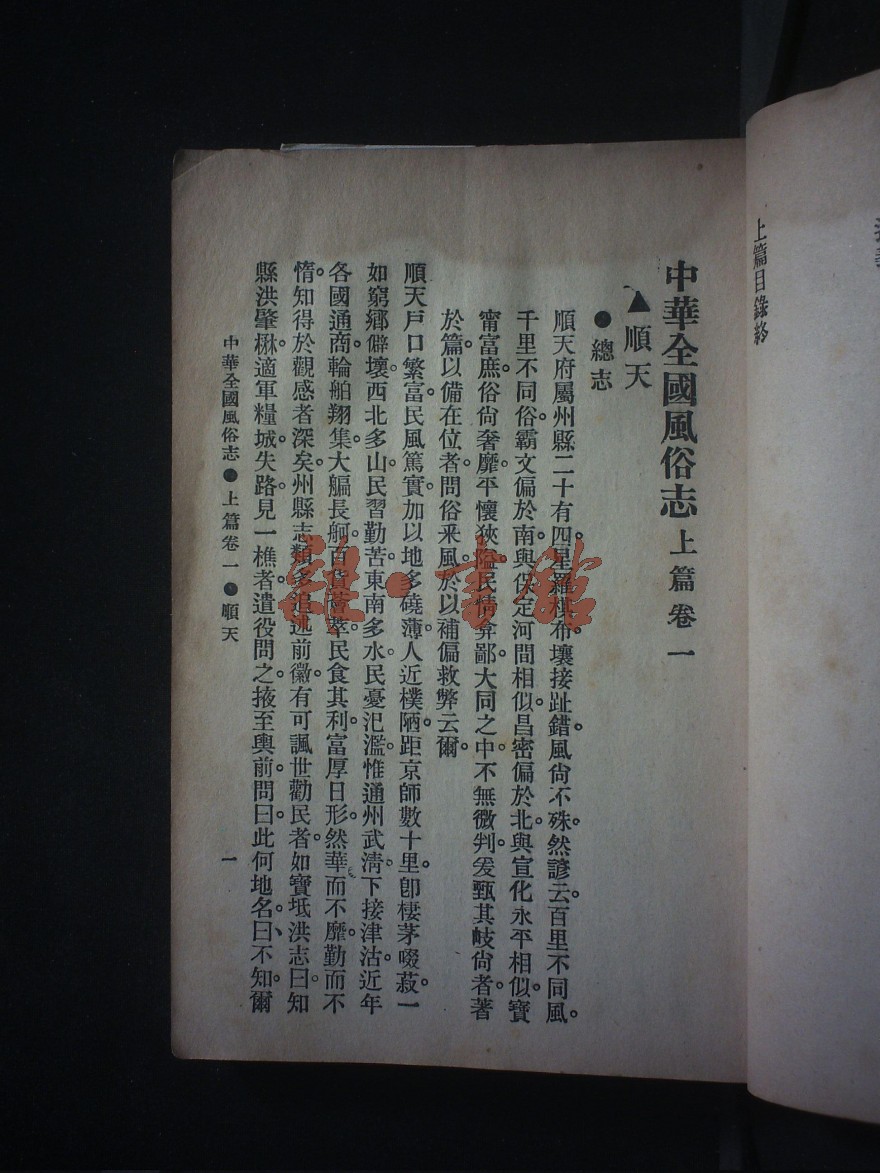 上篇目錄終
中華全國風俗志 上篇卷一
▲順天
●總志
順天府屬州縣二十有四。星羅棋布。壤接趾錯。風尙不殊。然諺云百里不同風。
千里不同俗。霸文偏於南。與保定河間相似。昌密偏於北。與宣化永平相似。寶
甯富庶。俗尙奢靡。平懷狹隘。民情弇鄙。大同之中。不無微判。爰甄其岐尙者。著
於篇。以備在位者問俗釆風。於以補偏救弊云爾。
順天戶口繁富。民風篤實。加以地多磽薄。人近樸陋。距京師數十里。卽棲茅啜菽。一
如窮鄉僻壤。西北多山。民習勤苦。東南多水。民憂氾濫。惟通州武淸。下接津沽。近年
各國通商。輪舶翔集。大艑長舸。百貨薈萃。民食其利。富厚日形。然華而不靡。勤而不
惰。知得於觀感者深矣。州縣志類多追述前徽。有可諷世勸民者。如寶坻洪志曰。知
縣洪肇楙。適軍糧城。失路。見一樵者。遣役問之。掖至輿前。問曰。此何地名。曰、不知。爾
中華全國風俗志 ●上篇卷一 ●順天
一
雒•書館